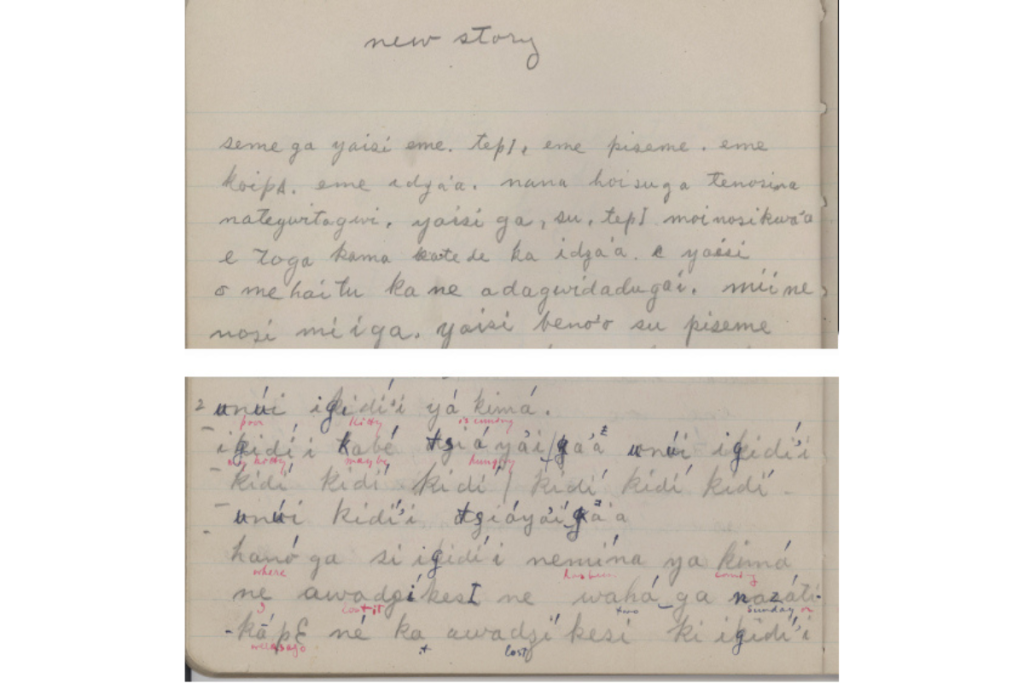 new story
seme ga yaisi eme. tepI, eme piseme. eme
koipA. eme idza'a. nana hoisuga tenosina
nategwitagwi. yaisi ga, su. tepI moinosikwa'a
e toga kama katede ka idza'a. e yaisi
o me haitu ka ne adagwidadugai. miine
nosi mi iga. yaisi beno'o su piseme
2 unúi igidí'i yá kimá.
poor kitty is coming
igidí'i kabé tsiáyái/gá'a unúi igidí'i
my kitty maybe hungry
kidí kidí kidí / kidí kidí kidí
unúi kidí'i tsiáyáígá'a
hanó ga si igidí'i nemína ya kimá
where has been coming
ne awadzíkesI ne wahá_ga nazáti-
I lost it two Sunday or
-kápƐ né ka awadzí kesi ki igidí'i
weeks ago it lost